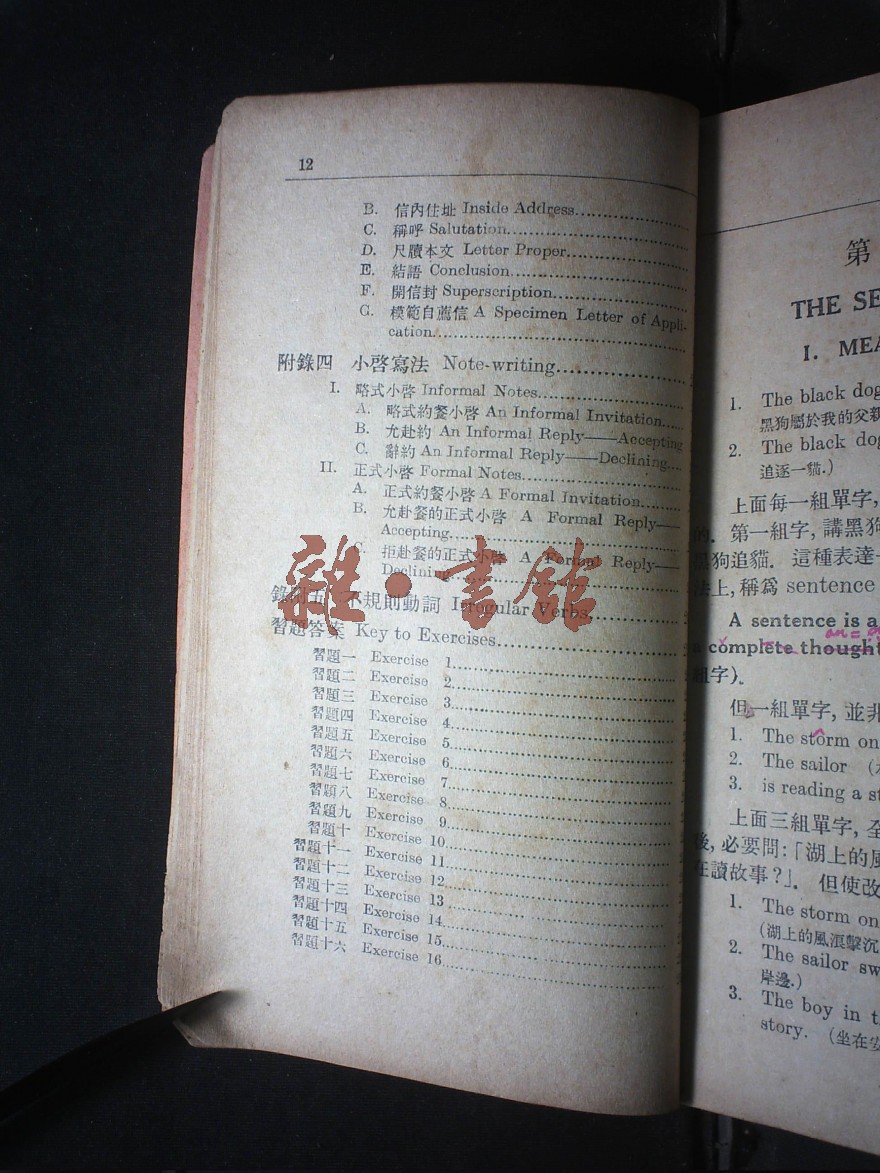 12
B. 信內住址 Inside Address
C. 稱呼 Salutation
D. 尺牘本文 Letter Proper
E. 結語 Conclusion
F. 開信封 Superscription
G. 模範自薦信 A Specimen Letter of Appli-
cation
附錄四 小啓寫法 Note-writing
I. 略式小啓 Informal Notes
A. 略式約餐小啓 An Informal Invitation
B. 允赴約 An Informal Reply——Accepting
C. 辭約 An Informal Reply——Declining
II. 正式小啓 Formal Notes
A. 正式約餐小啓 A Formal Invitation
B. 允赴餐的正式小啓 A Formal Reply——
Accepting
C. 拒赴餐的正式小啓 A Formal Reply——
Declining
錄附五 不規則動詞 Irregular Verbs
習題答案 Key to Exercises
習題一 Exercise 1
習題二 Exercise 2
習題三 Exercise 3
習題四 Exercise 4
習題五 Exercise 5
習題六 Exercise 6
習題七 Exercise 7
習題八 Exercise 8
習題九 Exercise 9
習題十 Exercise 10
習題十一 Exercise 11
習題十二 Exercise 12
習題十三 Exercise 13
習題十四 Exercise 14
習題十五 Exercise 15
習題十六 Exercise 16
雜·書館
第
THE SE
I. MEA
1. The black dog
黑狗屬於我的父親
2. The black dog
追逐一貓.)
上面每一組單字,
的. 第一組字, 講黑狗
黑狗追貓. 這種表達
法上, 稱爲 sentence
A sentence is a
a complete thought
組字).
但一組單字, 並非
1. The storm on
2. The sailor
3. is reading a st
上面三組單字, 全
後, 必要問:「湖上的風
在讀故事?」. 但使改
1. The storm on
(湖上的風浪擊沉
2. The sailor sw
岸邊.)
3. The boy in t
story. (坐在安